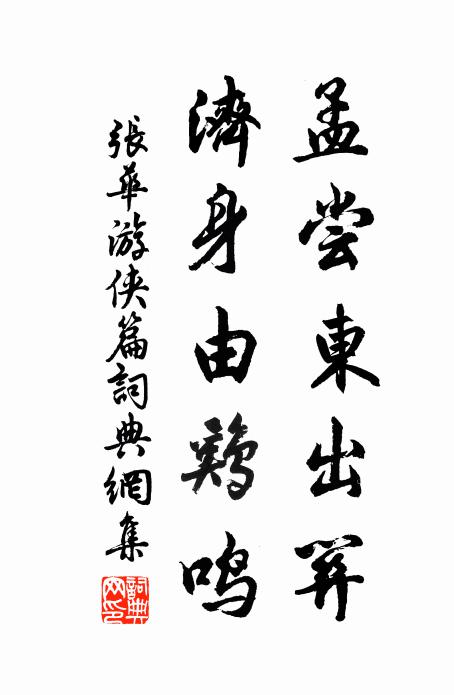 孟尝東出關
濟身由鷄鳴
張華游侠篇詞典網集
詞典網印